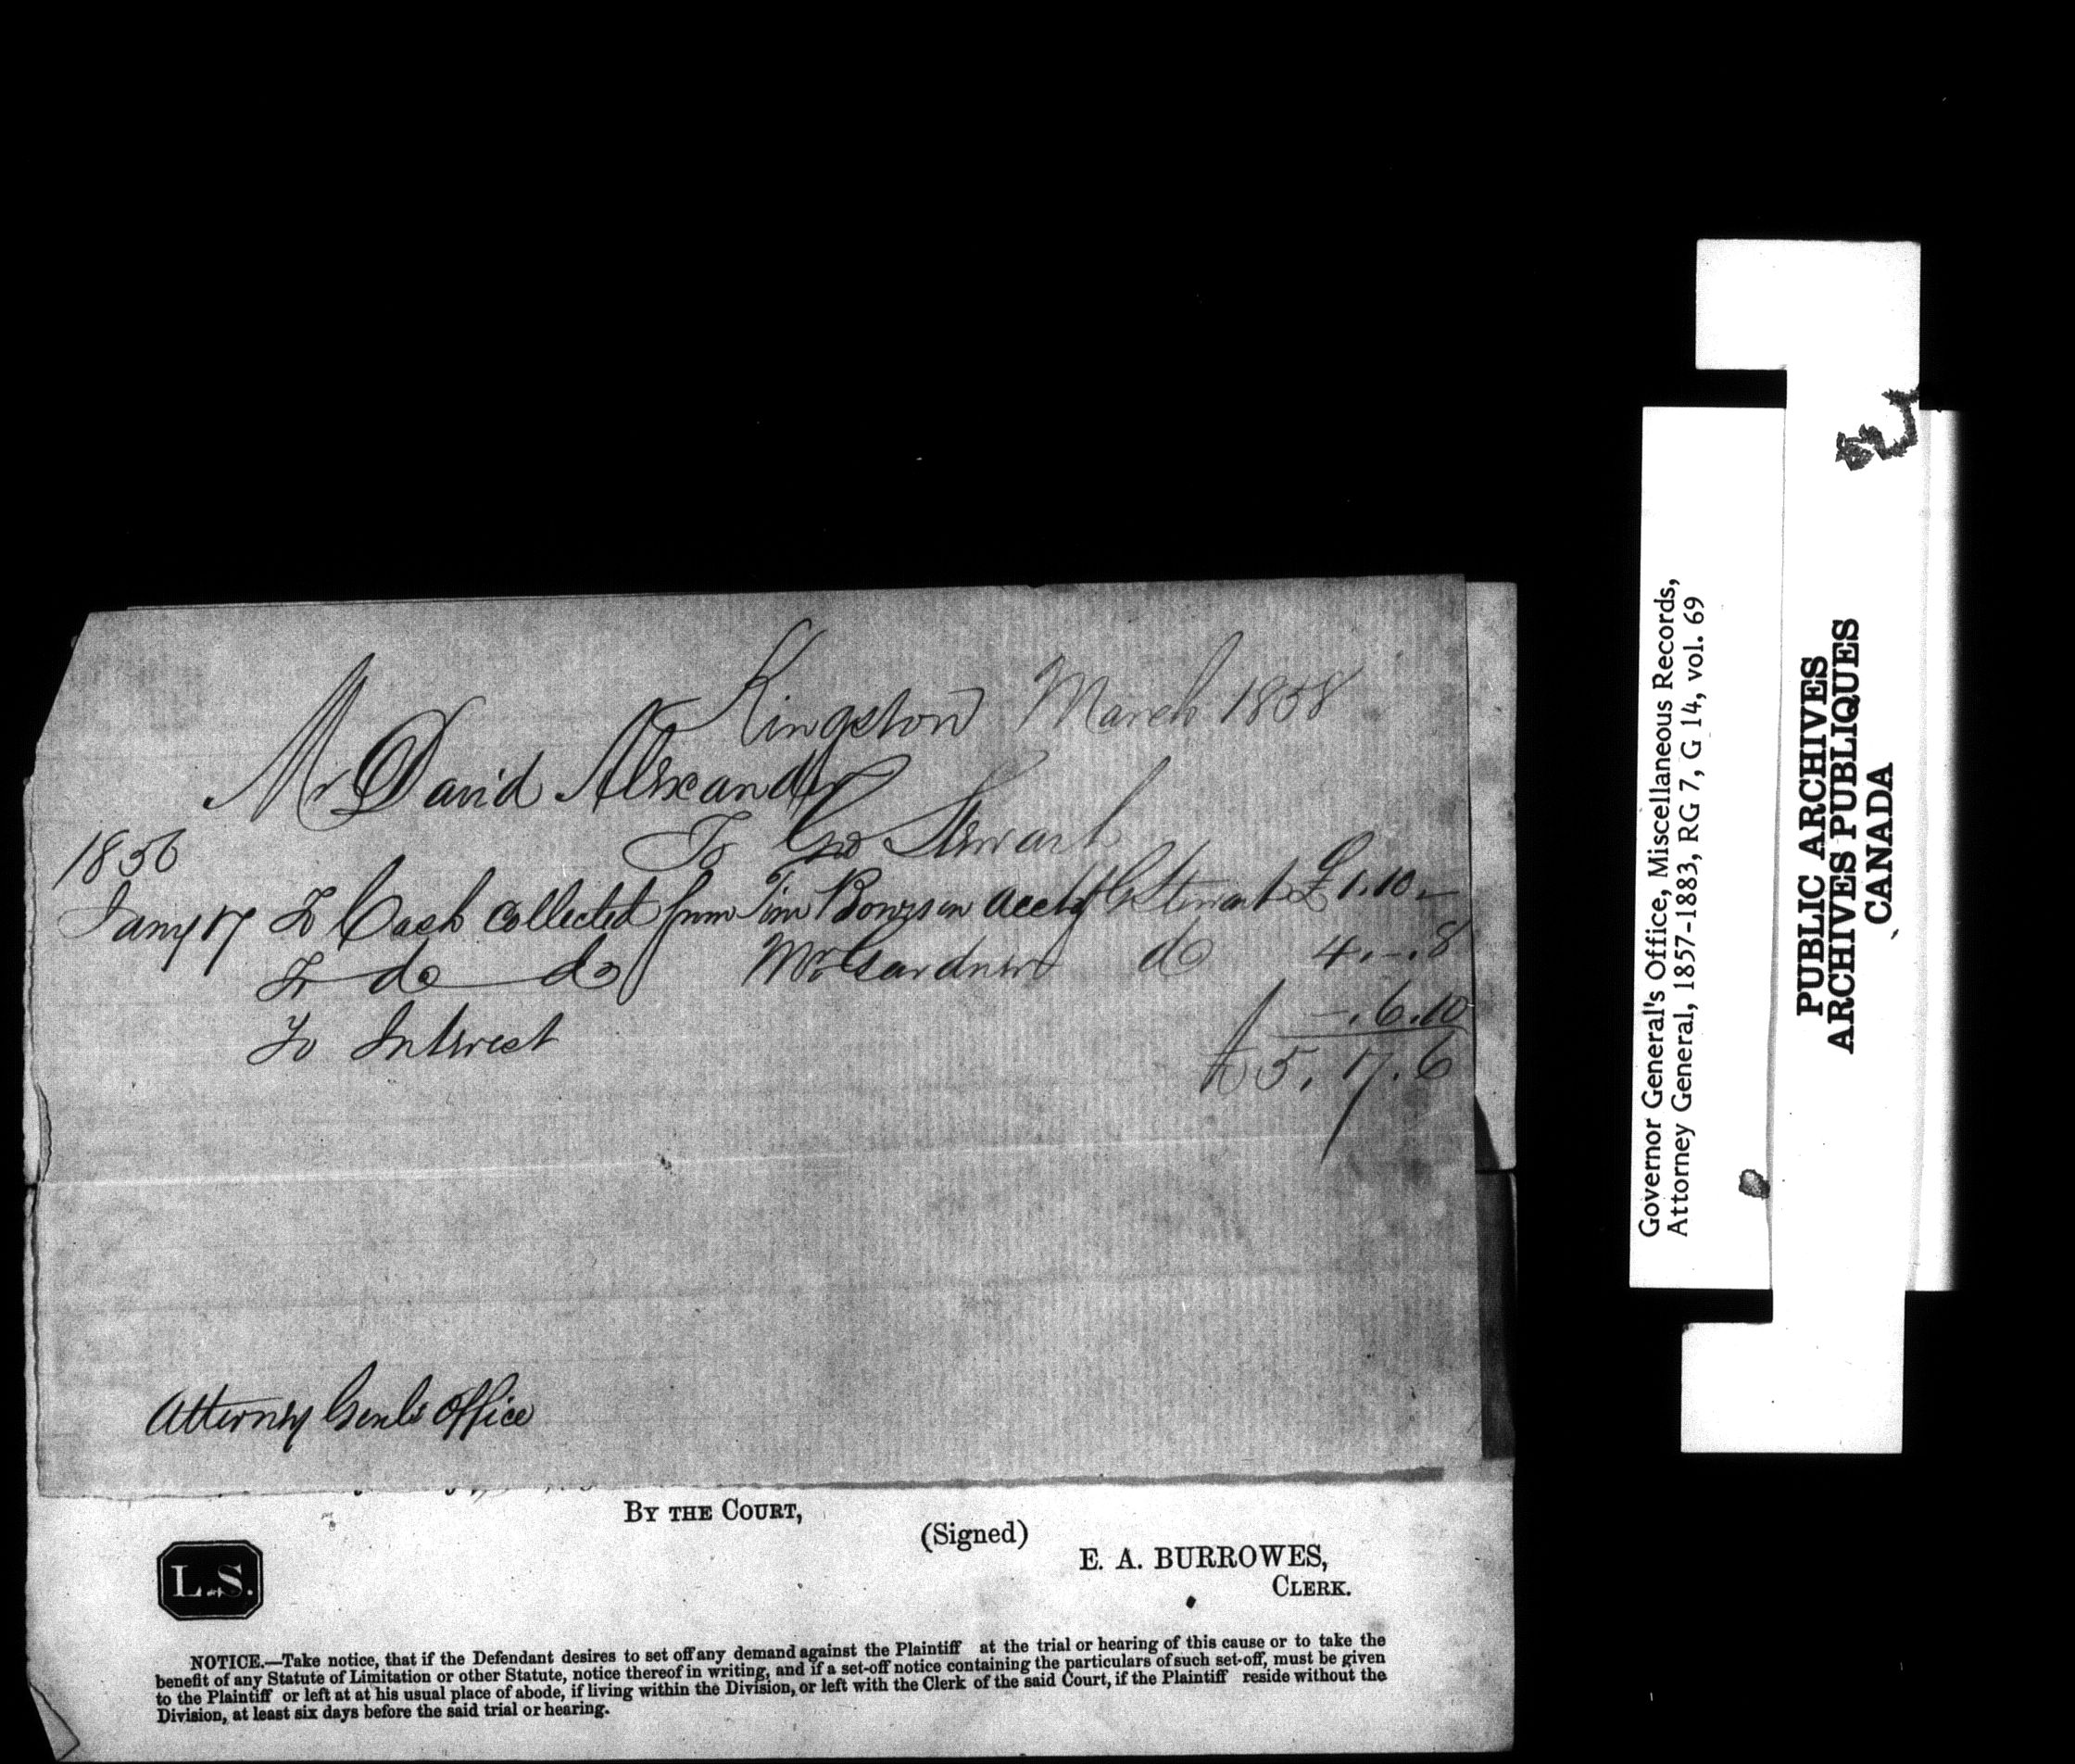 Kingston March 1858
Mr David Alexander
To Geo Stewart
1856
Jany 17 To Cash collected from Tim Bowes on acct of G Stewart £1.10.–
To do do Mr Gardner do 4.–.8
To Interest –.6.10
£5.17.6
Attorney Genls Office
BY THE COURT,
(Signed)
E. A. BURROWES,
CLERK.
L.S.
NOTICE.—Take notice, that if the Defendant desires to set off any demand against the Plaintiff at the trial or hearing of this cause or to take the
benefit of any Statute of Limitation or other Statute, notice thereof in writing, and if a set-off notice containing the particulars of such set-off, must be given
to the Plaintiff or left at at his usual place of abode, if living within the Division, or left with the Clerk of the said Court, if the Plaintiff reside without the
Division, at least six days before the said trial or hearing.
Governor General's Office, Miscellaneous Records,
Attorney General, 1857-1883, RG 7, G 14, vol. 69
PUBLIC ARCHIVES
ARCHIVES PUBLIQUES
CANADA